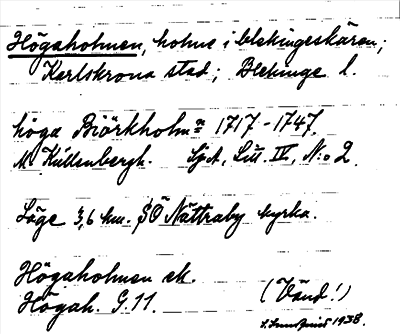 Högaholmen, holme i blekingeskären;
Karlskrona stad; Blekinge l.
höga Biörkholmn 1717-1747.
M. Kullenbergh. SjA, Litt. IV, N:o 2.
Läge 3,6 km. SÖ Nättraby kyrka.
Högaholmen ek.
Högah. G.11. (Vänd!)
1938.